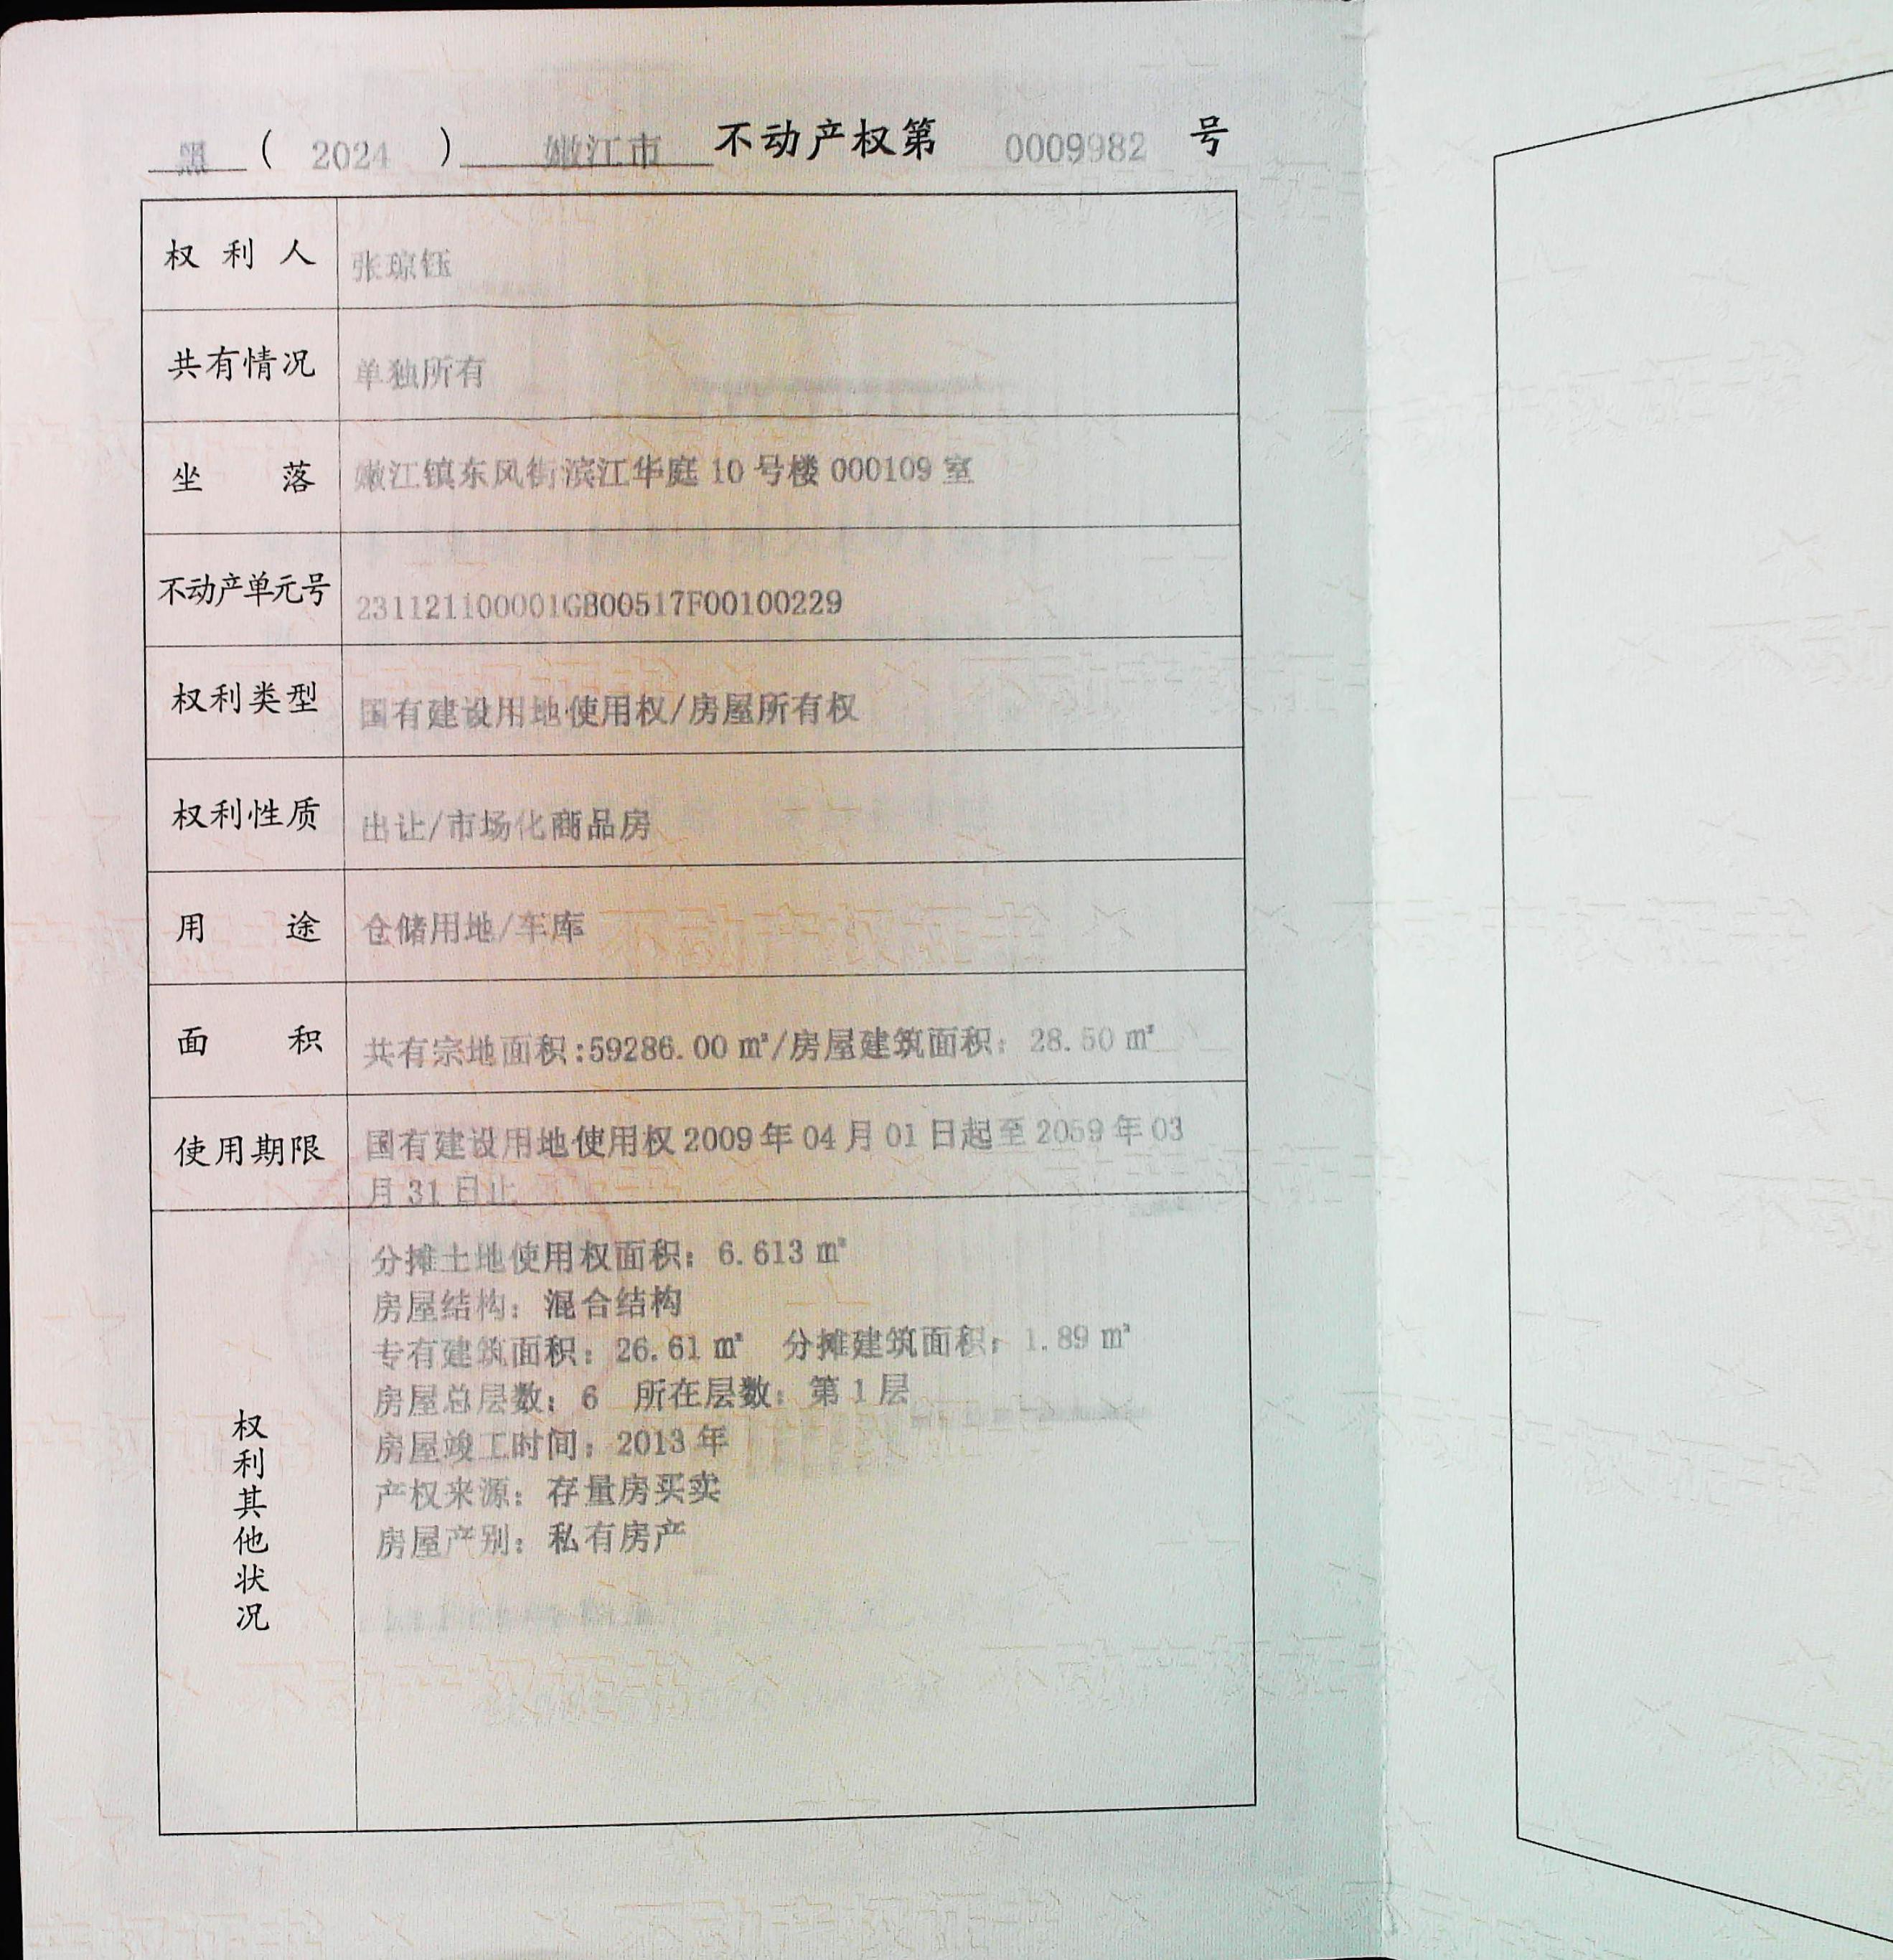 黑 ( 2024 ) 嫩江市 不动产权第 0009982 号
权利人 张琼钰
共有情况 单独所有
坐落 嫩江镇东风街滨江华庭 10 号楼 000109 室
不动产单元号 231121100001GB00517F00100229
权利类型 国有建设用地使用权/房屋所有权
权利性质 出让/市场化商品房
用途 仓储用地/车库
面积 共有宗地面积:59286.00 ㎡/房屋建筑面积: 28.50 ㎡
使用期限 国有建设用地使用权 2009 年 04 月 01 日起至 2059 年 03
月 31 日止
权利其他状况
分摊土地使用权面积: 6.613 ㎡
房屋结构: 混合结构
专有建筑面积: 26.61 ㎡ 分摊建筑面积: 1.89 ㎡
房屋总层数: 6 所在层数: 第 1 层
房屋竣工时间: 2013 年
产权来源: 存量房买卖
房屋产别: 私有房产